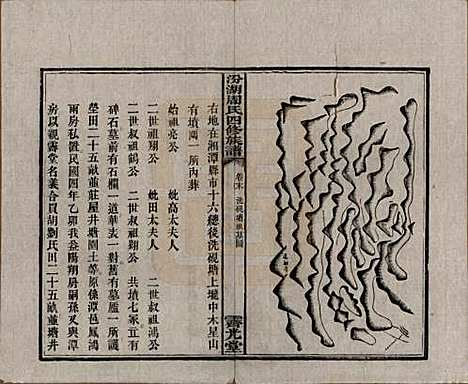 汾湖周氏四修族譜
卷末
霽光堂
右地在湘潭縣市十六總洗硯塘上壠中木星山
有墳兩一所內葬
始祖亮公 妣高太夫人
二世祖翔公 妣田太夫人
二世叔祖鶴公 二世叔祖鴻公
二世叔祖翔公 共墳七冢立有
碑石墓前有石欄一道華表一對舊有墓廬一所
塋田二十五畝並莊屋井塘園土等原係潭邑鳳鴻
兩房私管民國四年乙卯我益陽翔房嗣孫又與潭
房以觀霽堂名義合買胡劉氏田二十五畝並塘井